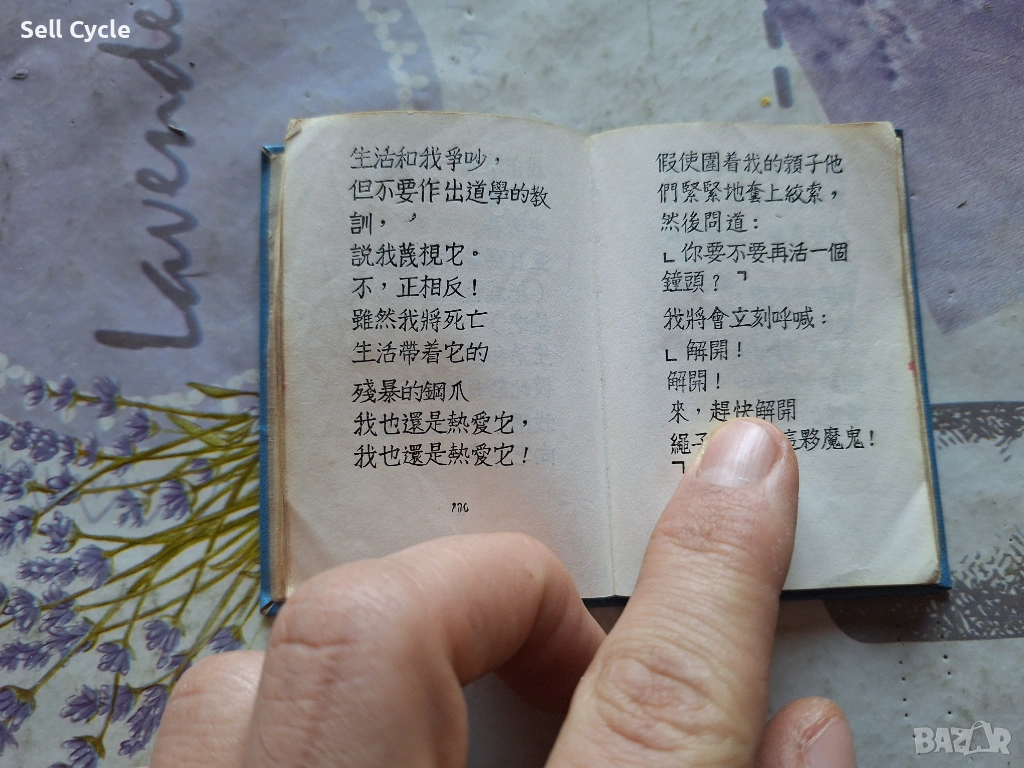 Sell Cycle
Lavende
生活和我爭吵，
但不要作出道學的教
訓，，
説我蔑視它。
不，正相反！
雖然我將死亡
生活帶着它的
殘暴的鋼爪
我也還是熱愛它，
我也還是熱愛它！
130
假使圍着我的頸子他
們緊緊地套上絞索，
然後問道：
「你要不要再活一個
鐘頭？」
我將會立刻呼喊：
「解開！
解開！
來，趕快解開
繩子 這夥魔鬼！
」
BAZAR